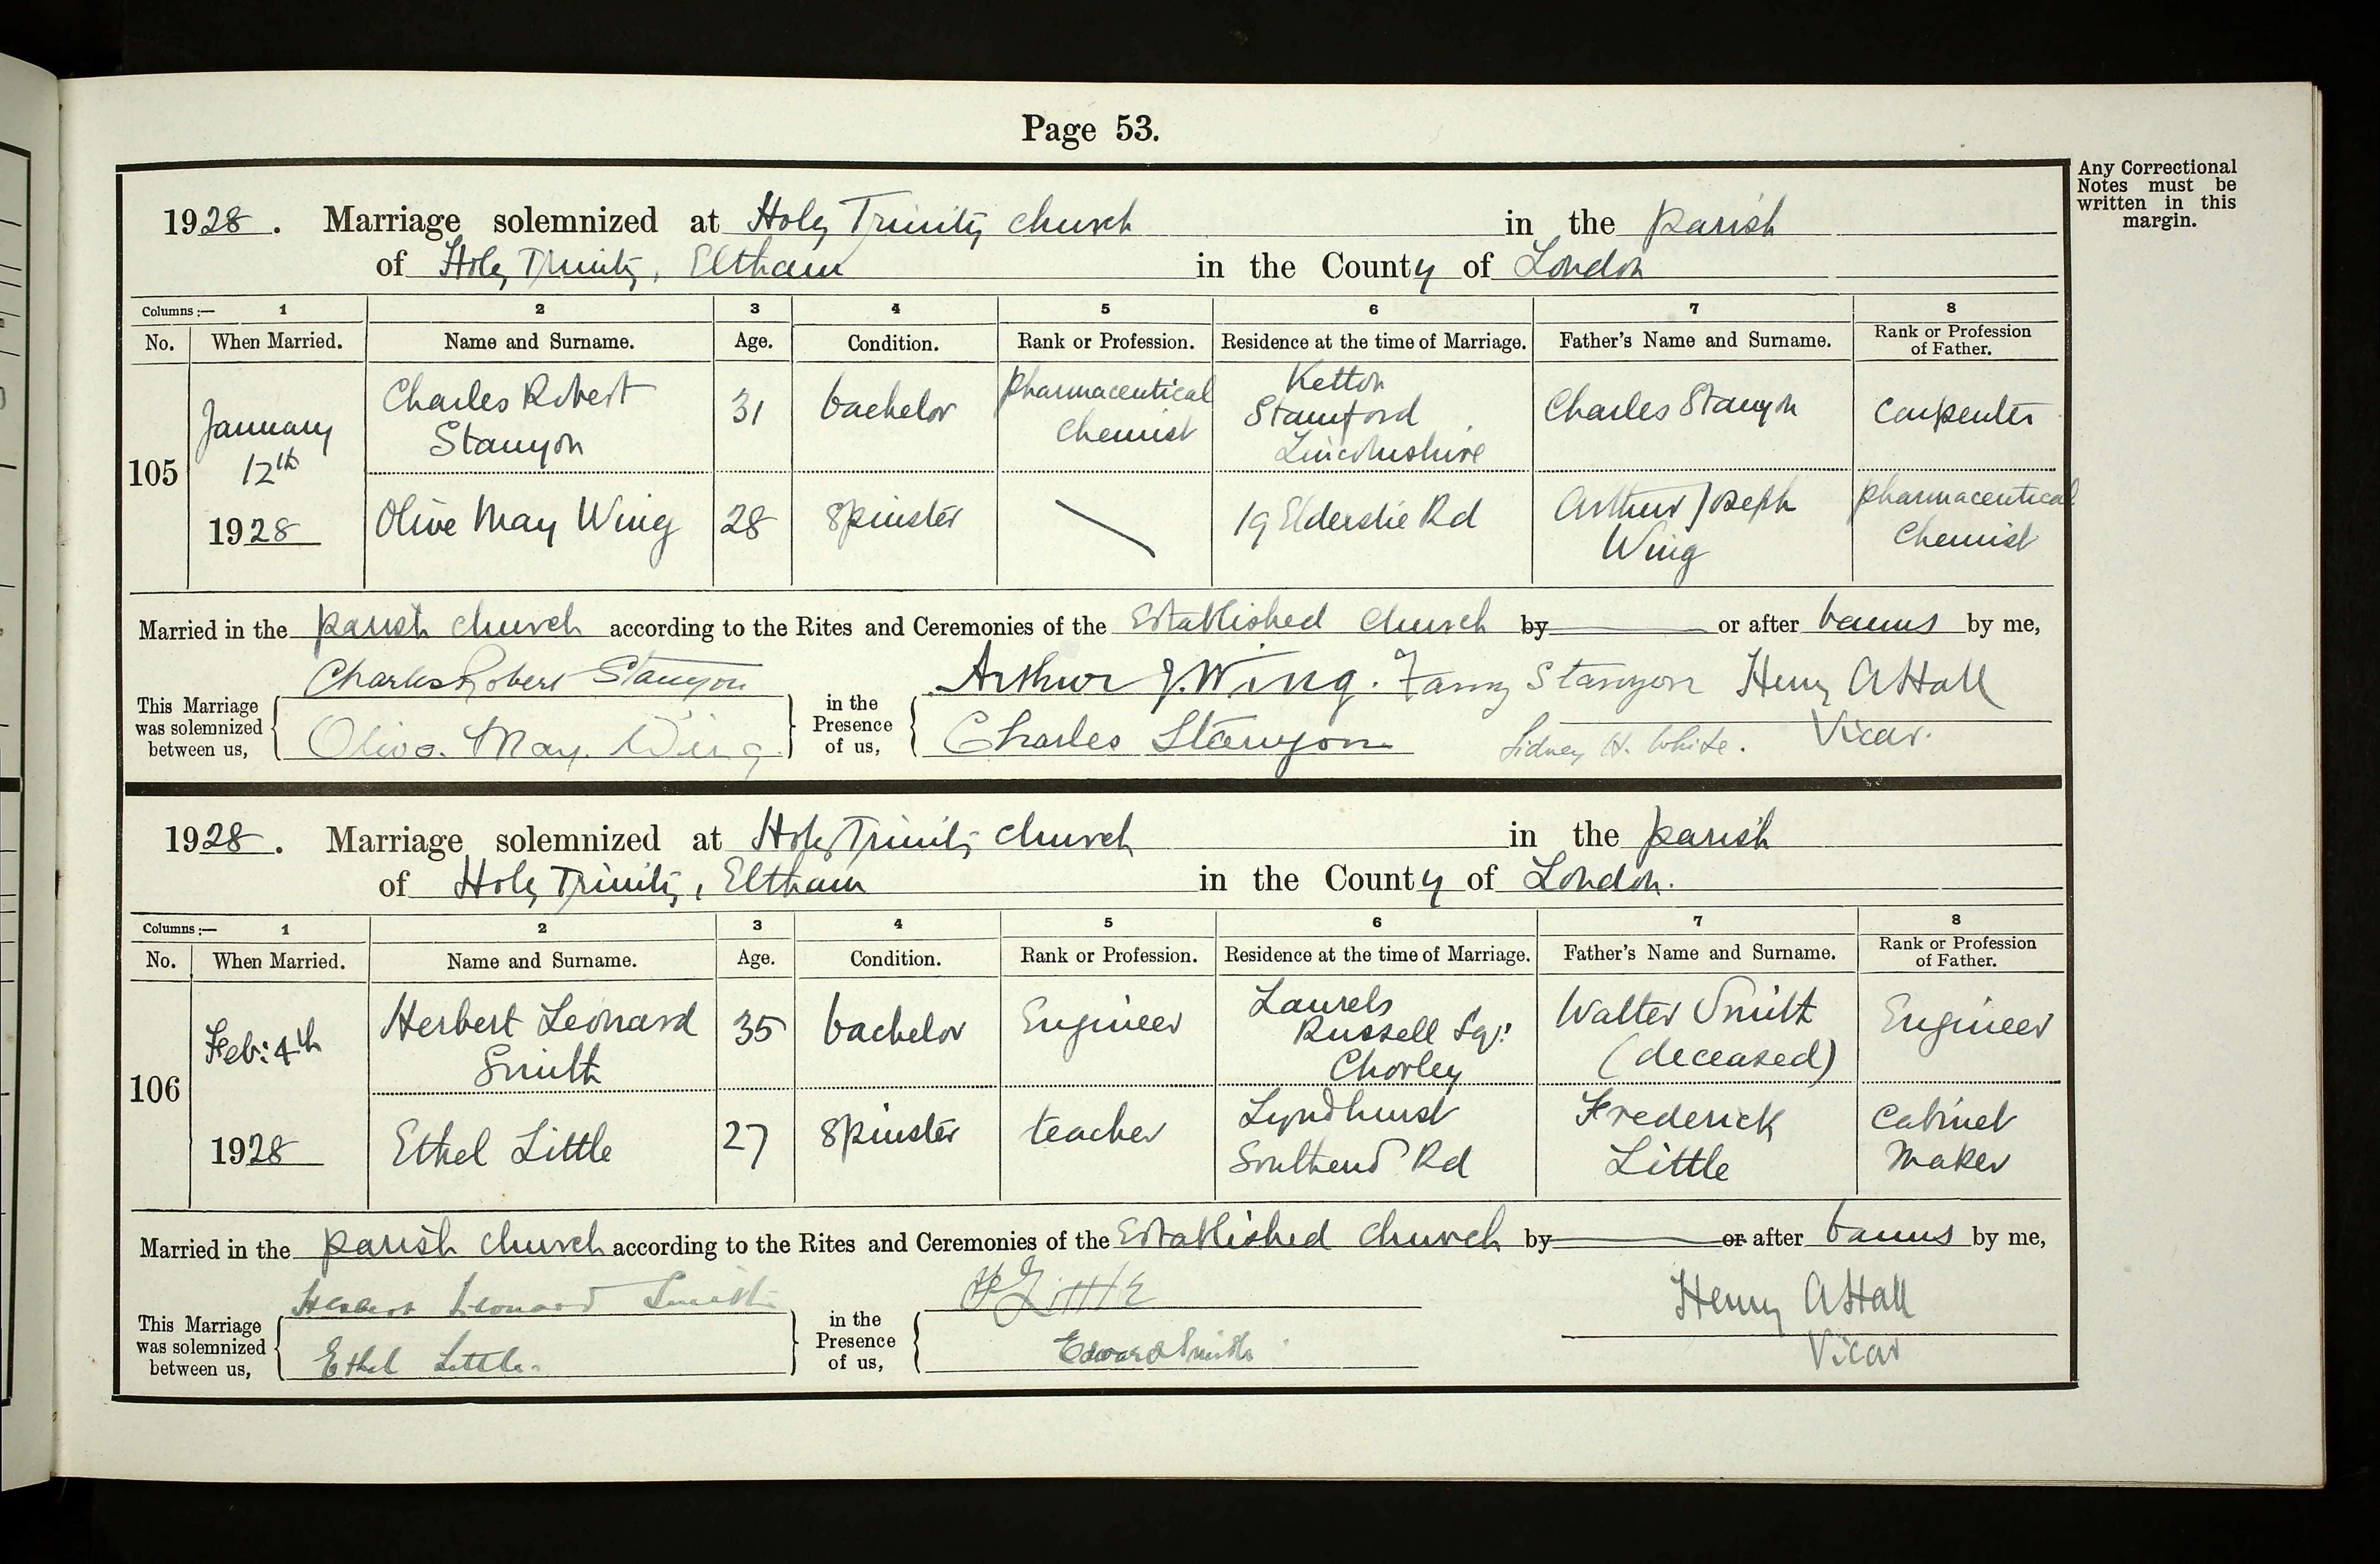 Page 53.
Any Correctional
Notes must be
written in this
margin.
1928. Marriage solemnized at Holy Trinity church in the parish
of Holy Trinity, Eltham in the County of London
Columns :— 1 2 3 4 5 6 7 8
No. When Married. Name and Surname. Age. Condition. Rank or Profession. Residence at the time of Marriage. Father's Name and Surname. Rank or Profession of Father.
105
January
12th
1928
Charles Robert
Stanyon
31
bachelor
pharmaceutical
chemist
Ketton
Stamford
Lincolnshire
Charles Stanyon
carpenter
Olive May Wing
28
spinster
19 Elderslie Rd
Arthur Joseph
Wing
pharmaceutical
chemist
Married in the parish church according to the Rites and Ceremonies of the Established church by or after banns by me,
This Marriage
was solemnized
between us,
Charles Robert Stanyon
Olive May Wing
in the
Presence
of us,
Arthur J. Wing. Fanny Stanyon Henry A Hall
Charles Stanyon Sidney H. White. Vicar.
1928. Marriage solemnized at Holy Trinity church in the parish
of Holy Trinity, Eltham in the County of London.
Columns :— 1 2 3 4 5 6 7 8
No. When Married. Name and Surname. Age. Condition. Rank or Profession. Residence at the time of Marriage. Father's Name and Surname. Rank or Profession of Father.
106
Feb: 4th
1928
Herbert Leonard
Smith
35
bachelor
Engineer
Laurels
Russell Sqr:
Chorley
Walter Smith
(deceased)
Engineer
Ethel Little
27
spinster
teacher
Lyndhurst
Southend Rd
Frederick
Little
cabinet
maker
Married in the parish church according to the Rites and Ceremonies of the Established church by or after banns by me,
This Marriage
was solemnized
between us,
Herbert Leonard Smith
Ethel Little
in the
Presence
of us,
F Little
Edward Smith
Henry A Hall
Vicar